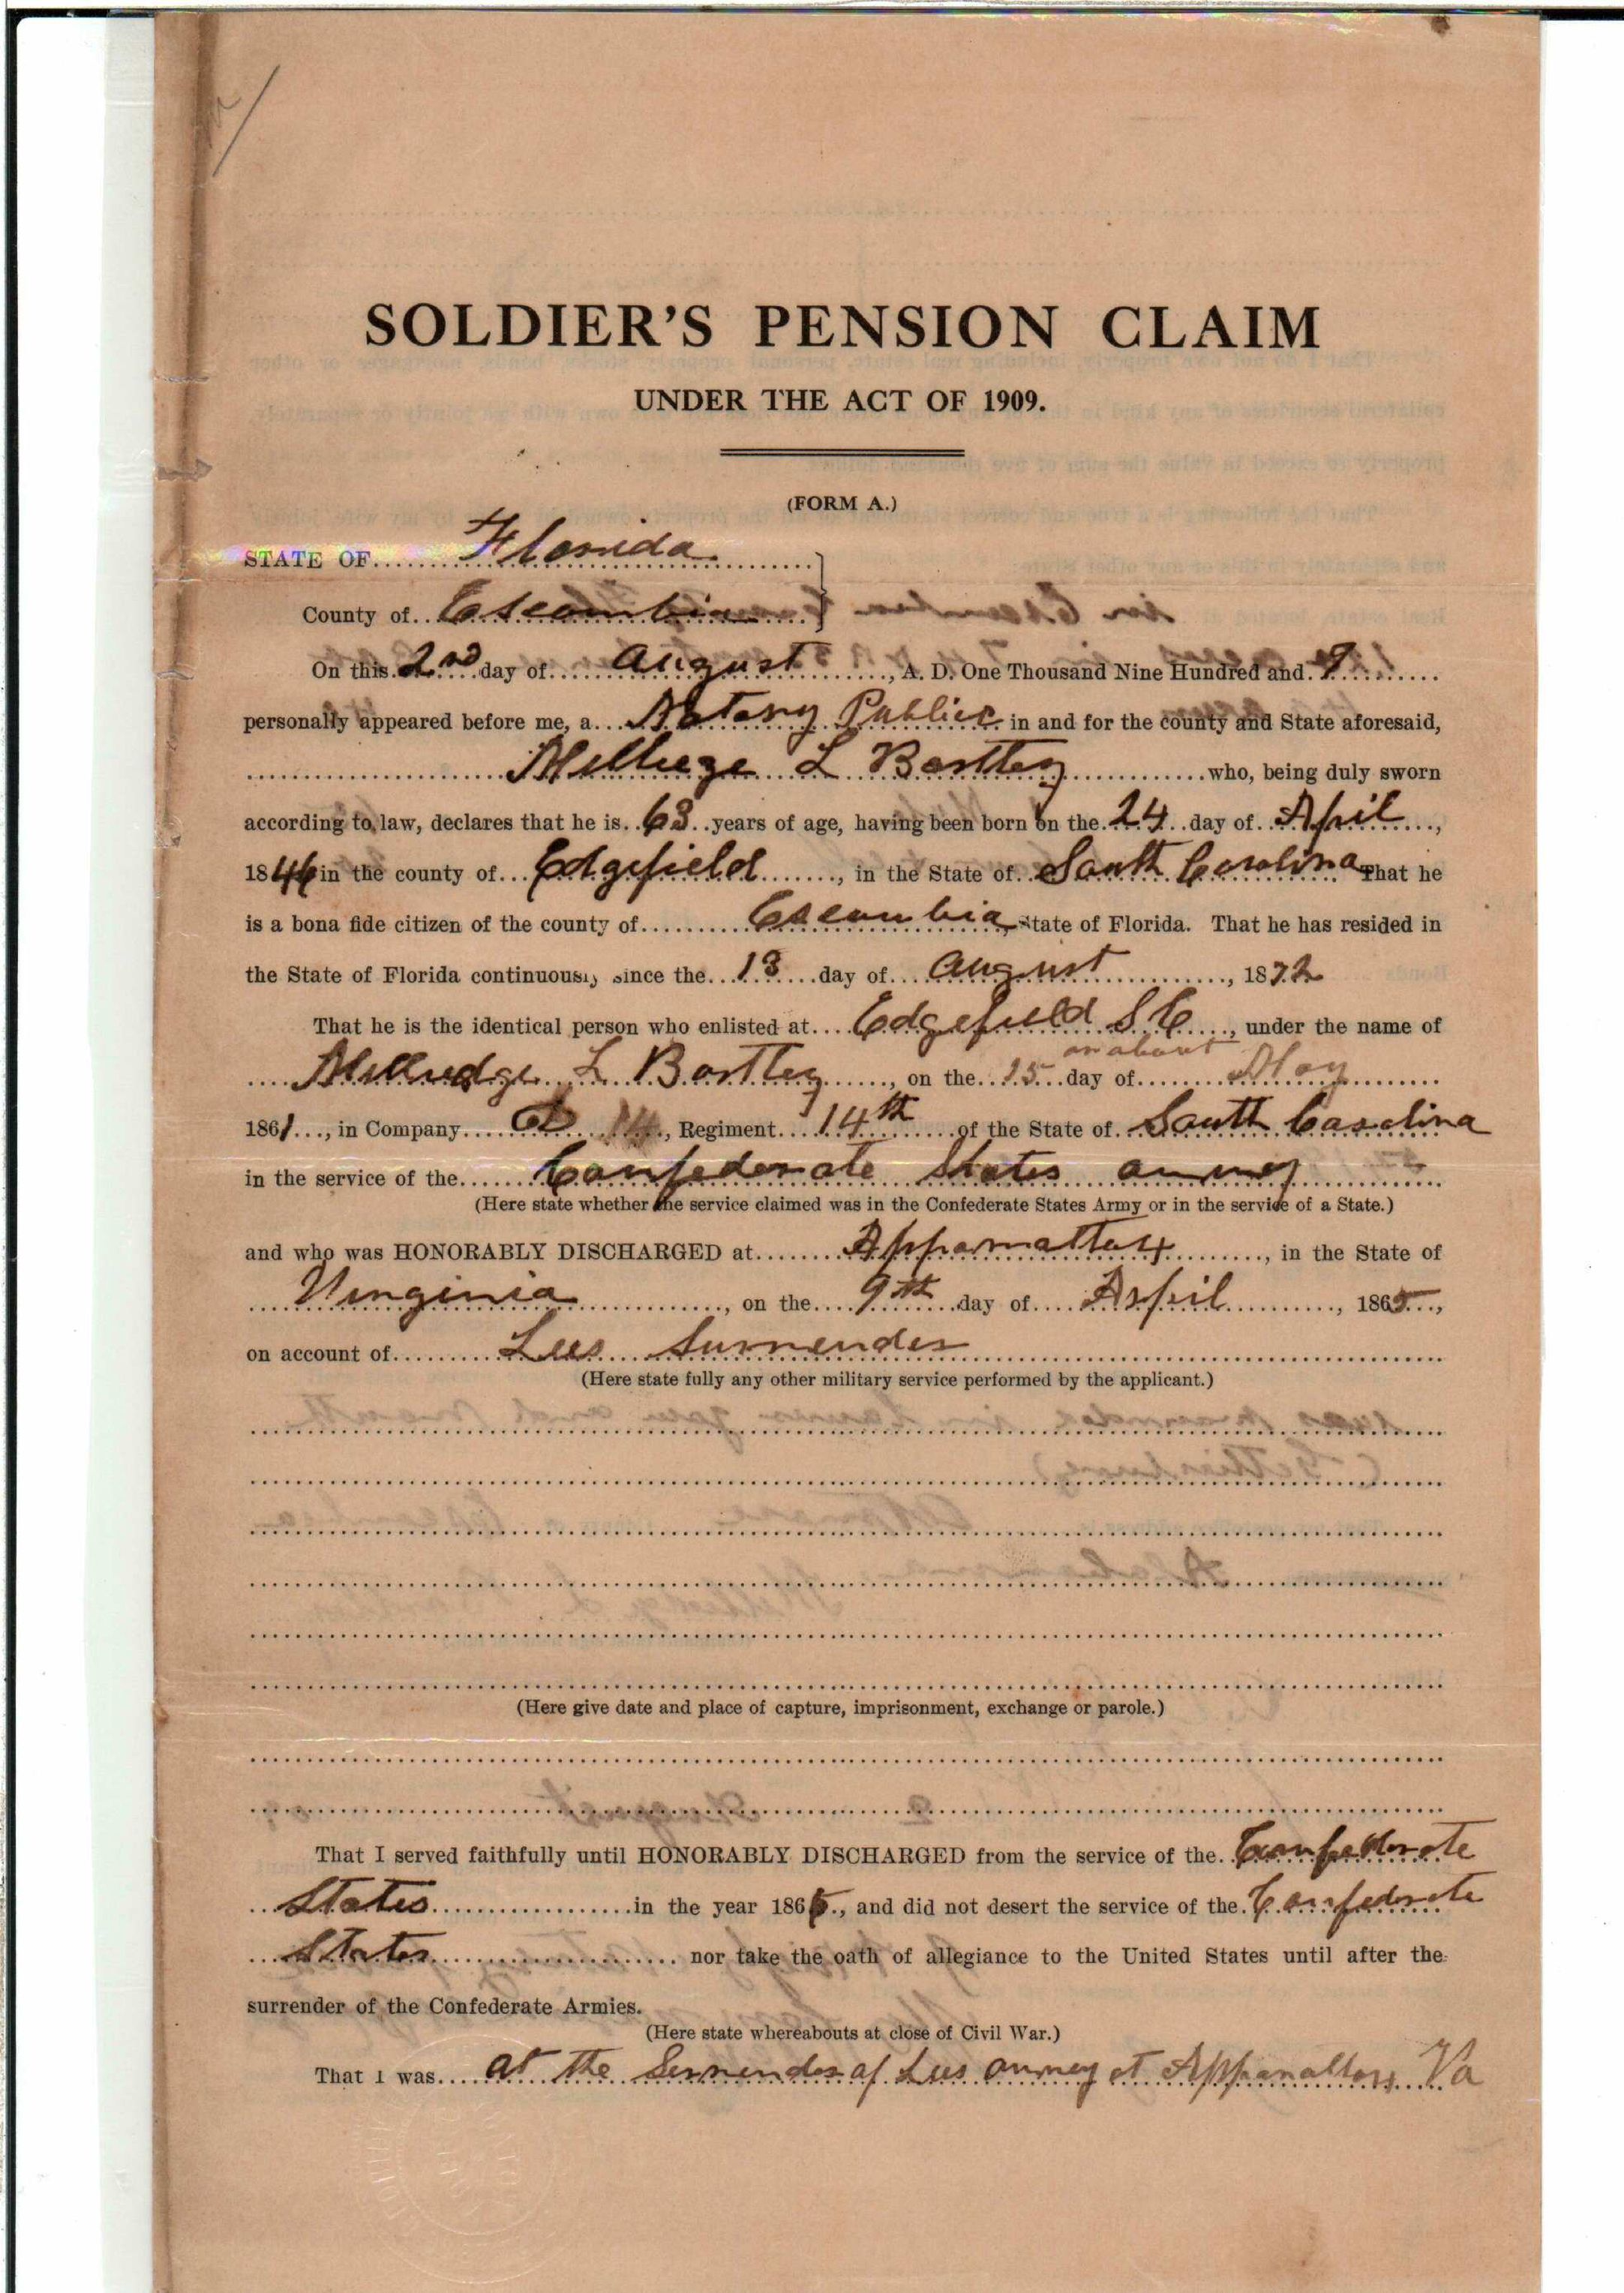 SOLDIER'S PENSION CLAIM
UNDER THE ACT OF 1909.
(FORM A.)
STATE OF Florida
County of Escambia
On this 2nd day of August, A. D. One Thousand Nine Hundred and 9
personally appeared before me, a Notary Public in and for the county and State aforesaid,
L Bartley who, being duly sworn
according to law, declares that he is 63 years of age, having been born on the 24 day of April,
1846 in the county of Edgefield, in the State of South Carolina That he
is a bona fide citizen of the county of Escambia, State of Florida. That he has resided in
the State of Florida continuously since the 13 day of August, 1872
That he is the identical person who enlisted at Edgefield S C, under the name of
Milledge L Bartley, on the 15 day of on about May
1861, in Company D 14, Regiment 14th of the State of South Carolina
in the service of the Confederate States army
(Here state whether the service claimed was in the Confederate States Army or in the service of a State.)
and who was HONORABLY DISCHARGED at Appomattox, in the State of
Virginia, on the 9th day of April, 1865,
on account of Lees Surrender
(Here state fully any other military service performed by the applicant.)
(Here give date and place of capture, imprisonment, exchange or parole.)
That I served faithfully until HONORABLY DISCHARGED from the service of the Confederate
States in the year 1865, and did not desert the service of the Confederate
States nor take the oath of allegiance to the United States until after the
surrender of the Confederate Armies.
(Here state whereabouts at close of Civil War.)
That I was at the Surrender of Lees army at Appomattox Va